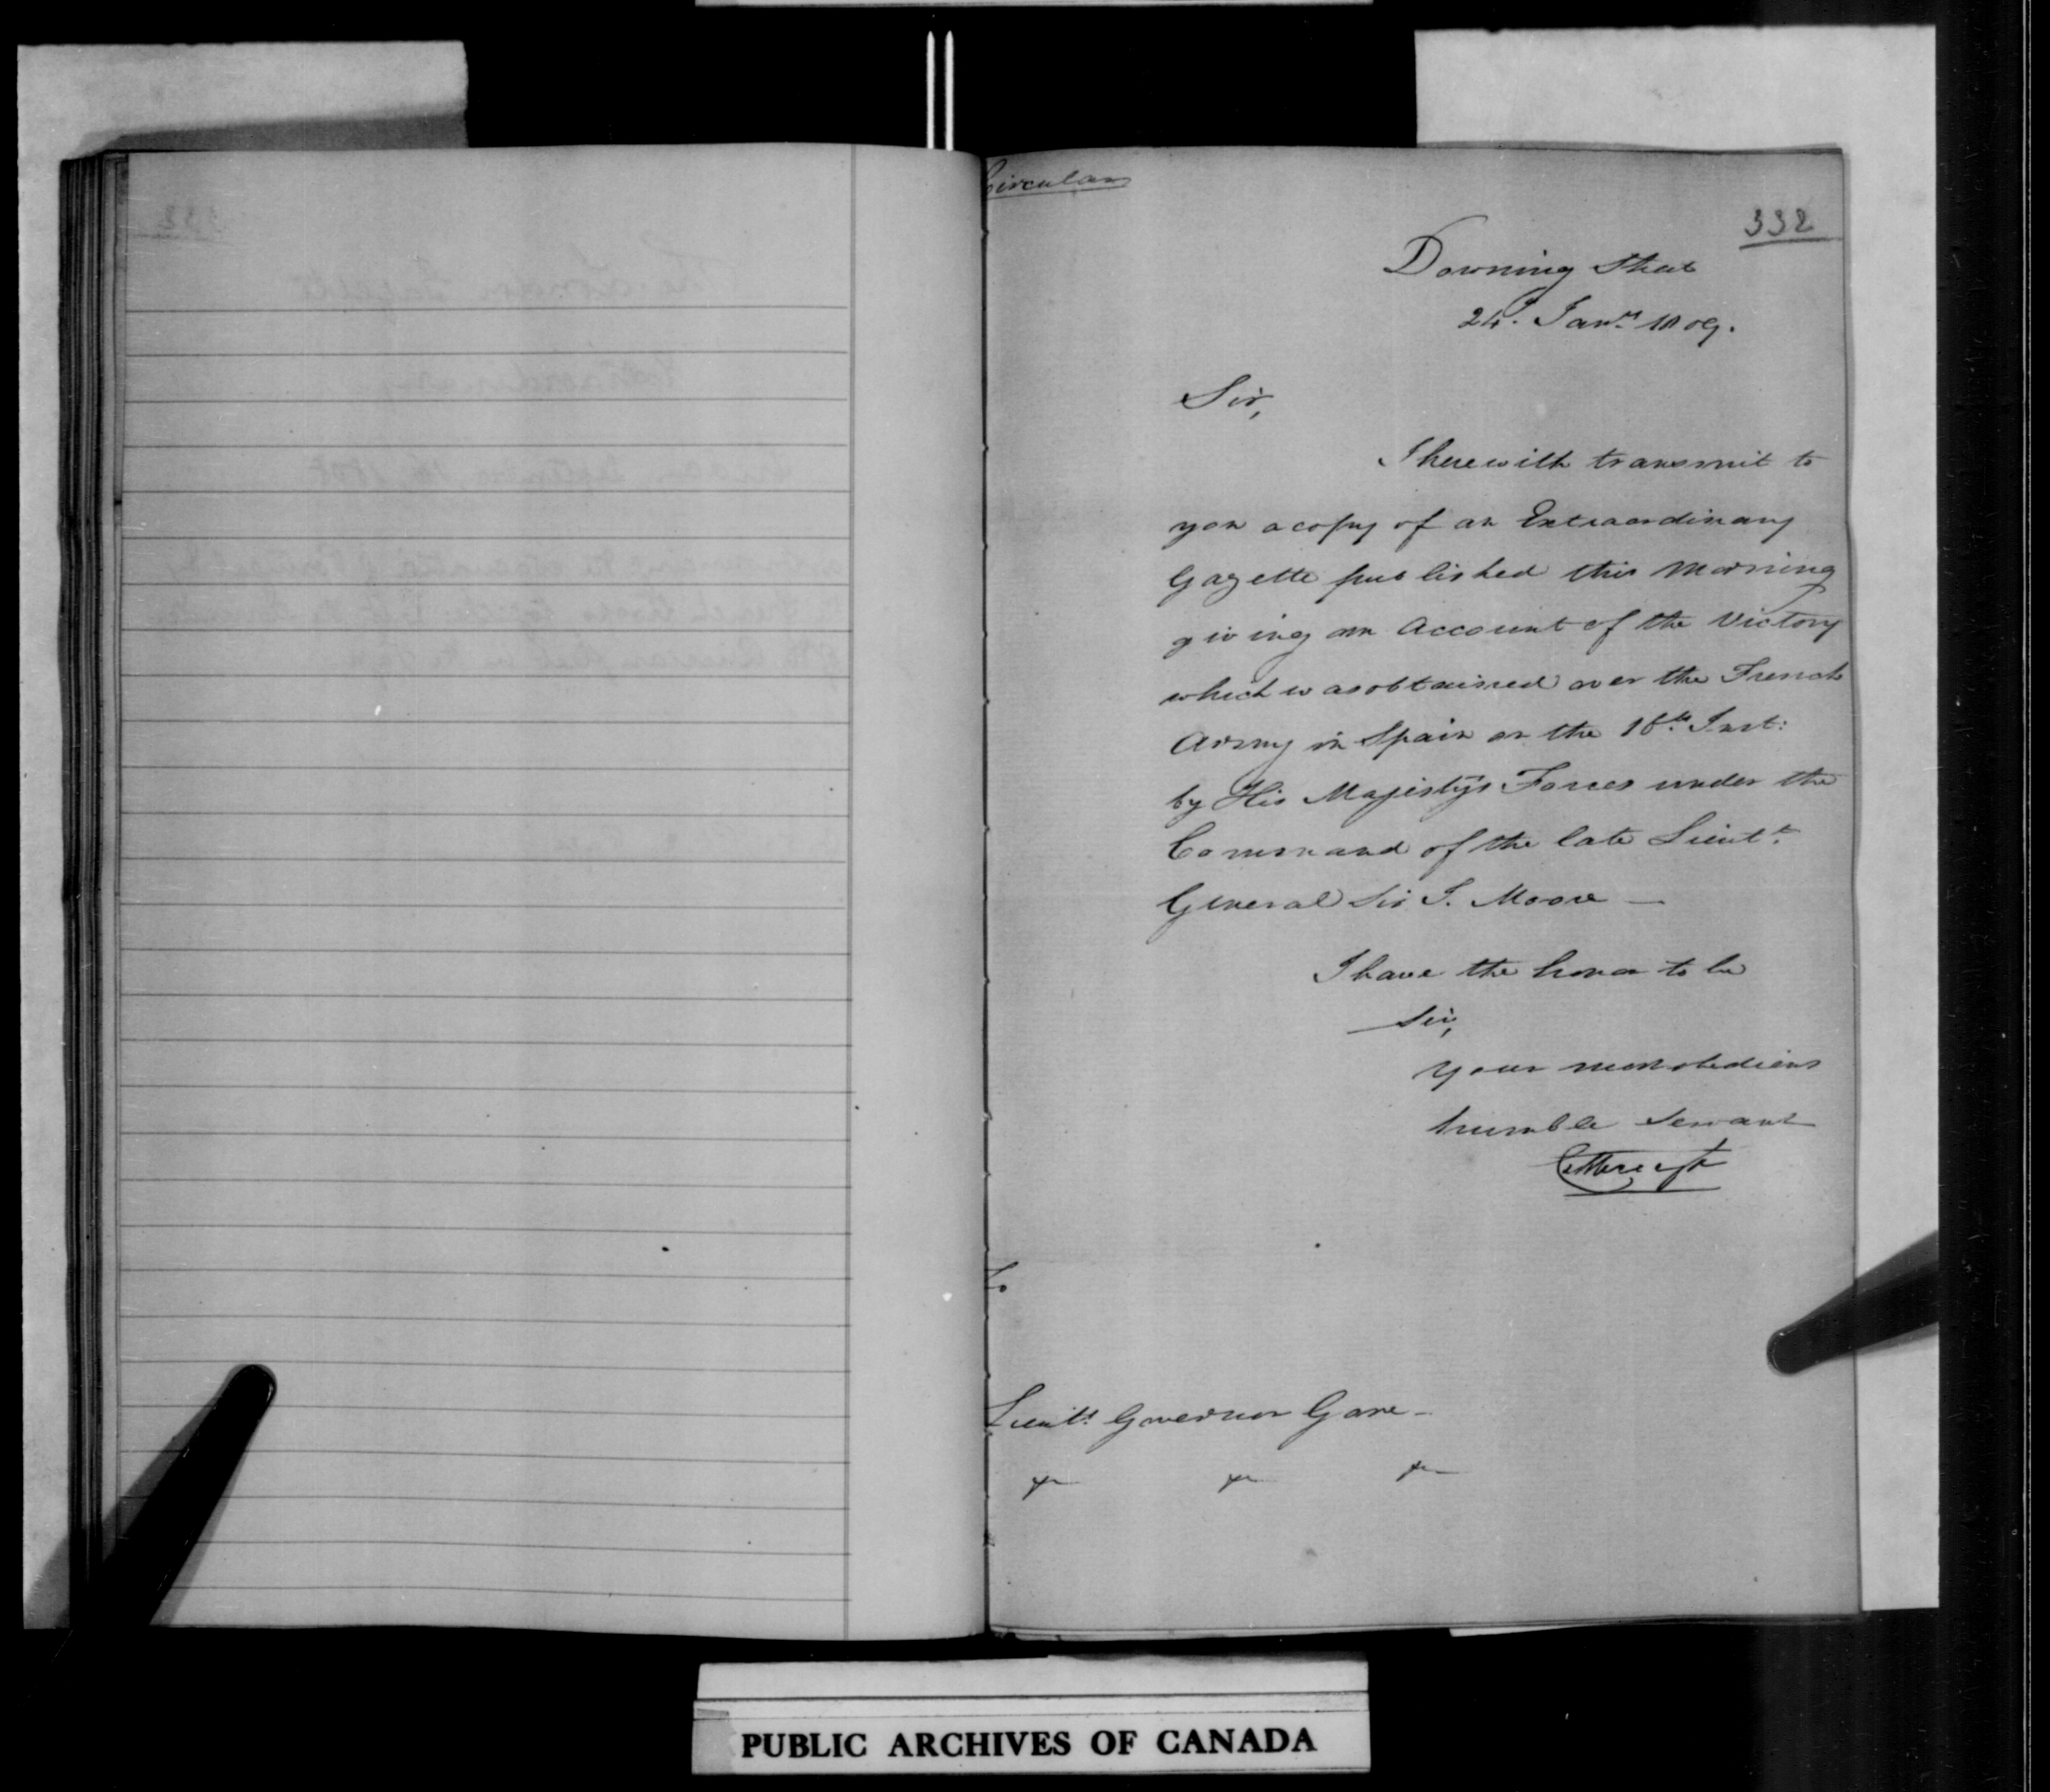 Circular
332
Downing Street
24. Jany. 1809.
Sir,
I herewith transmit to
you a copy of an Extraordinary
Gazette published this Morning
giving an Account of the Victory
which was obtained over the French
Army in Spain on the 16th. Inst:
by His Majesty's Forces under the
Command of the late Lieutt.
General Sir J. Moore —
I have the honor to be
Sir,
Your most obedient
humble Servant
Castlereagh
To
Lieutt. Governor Gore —
PUBLIC ARCHIVES OF CANADA